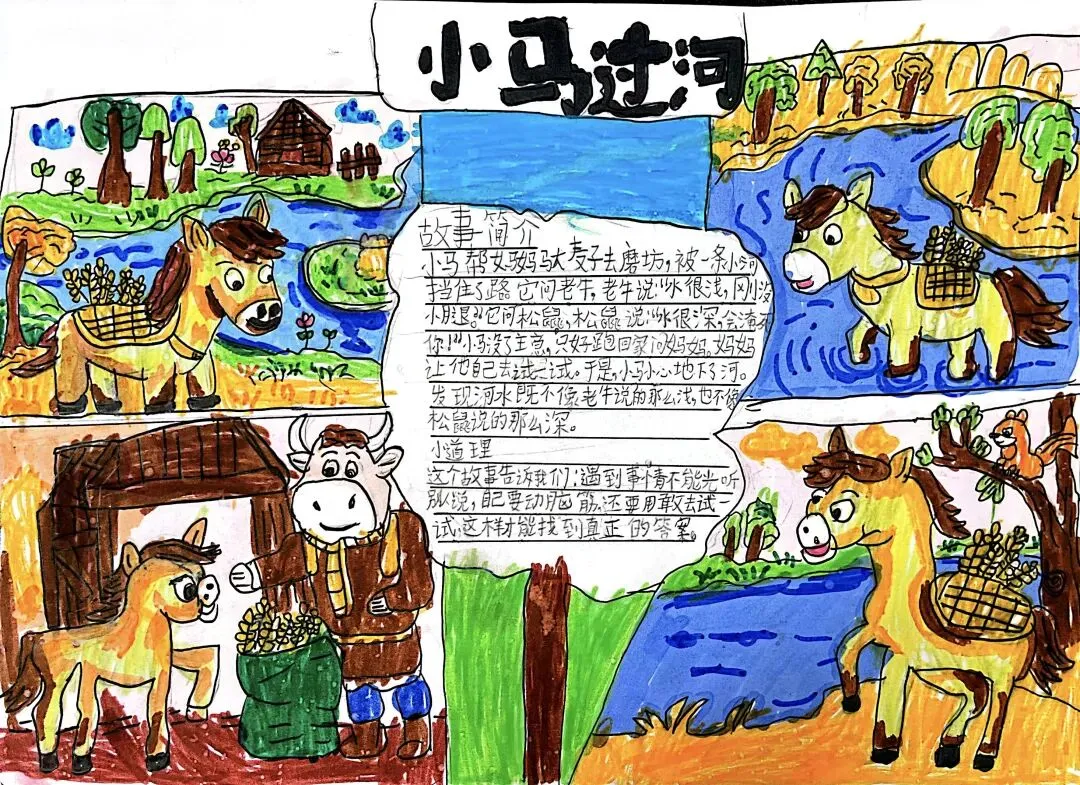 小马过河
故事简介
小马帮妈妈马大麦子去磨坊,被一条小河
挡住了路 它问老牛,老牛说:“水很浅,刚没
小腿。”它问松鼠,松鼠说:“水很深,会淹死
你!”小马没了主意,只好跑回家问妈妈。妈妈
让他自己去试一试。于是,小马小心地下了河。
发现河水既不像老牛说的那么浅,也不像
松鼠说的那么深。
小道理
这个故事告诉我们:遇到事情不能光听
别说,自己要动脑筋,还要用敢去试
试,这样才能找到真正的答案。